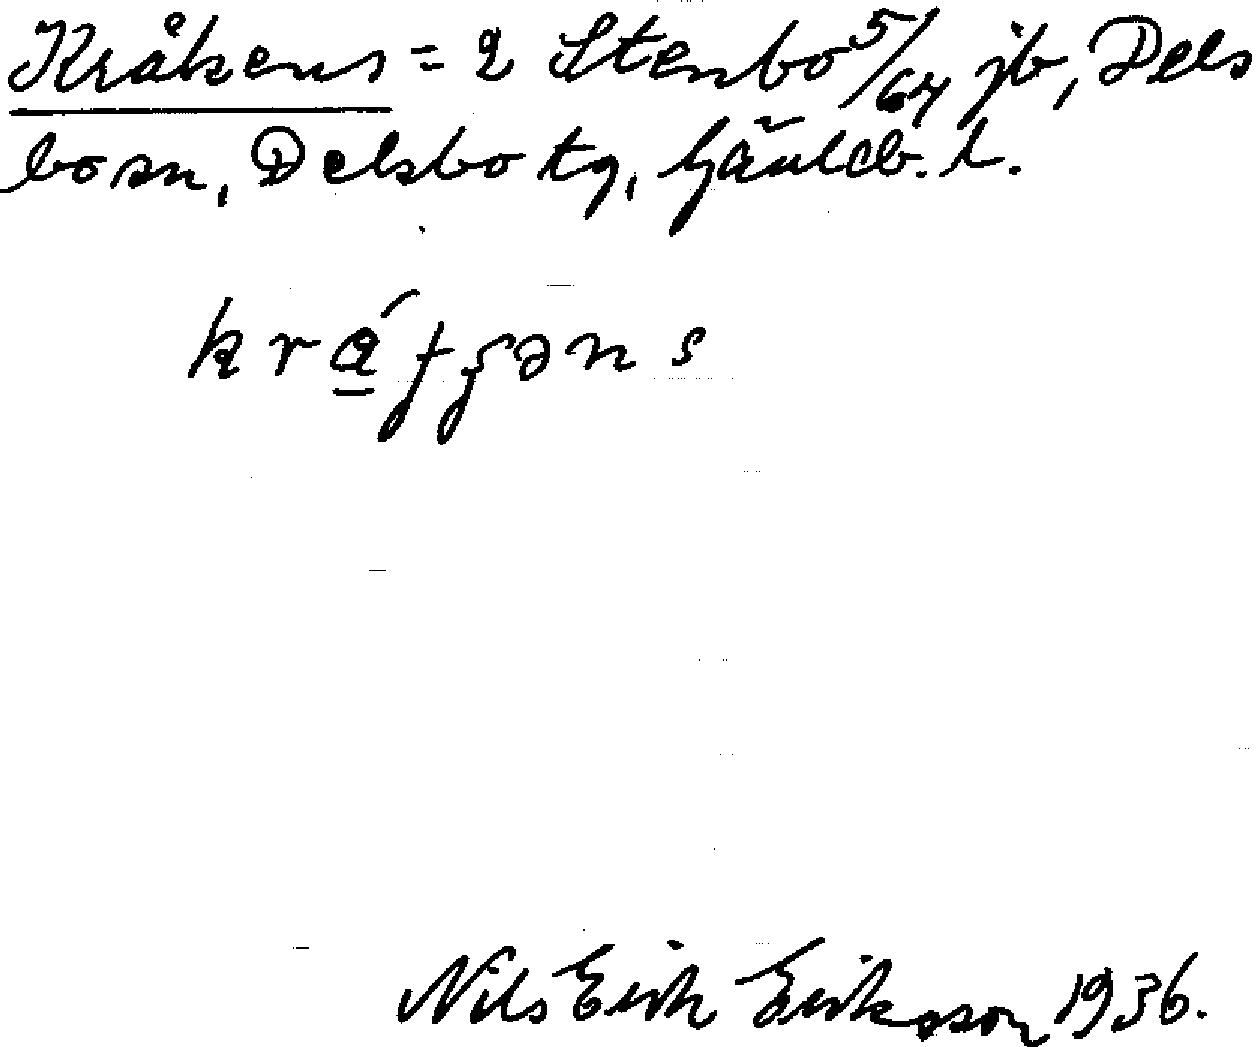 Kråkens = 2 Stenbo 5/64 jb, Dels
bo sn, Delsbo tg, Gävleb. l.
Nils Erik Eriksson 1936.